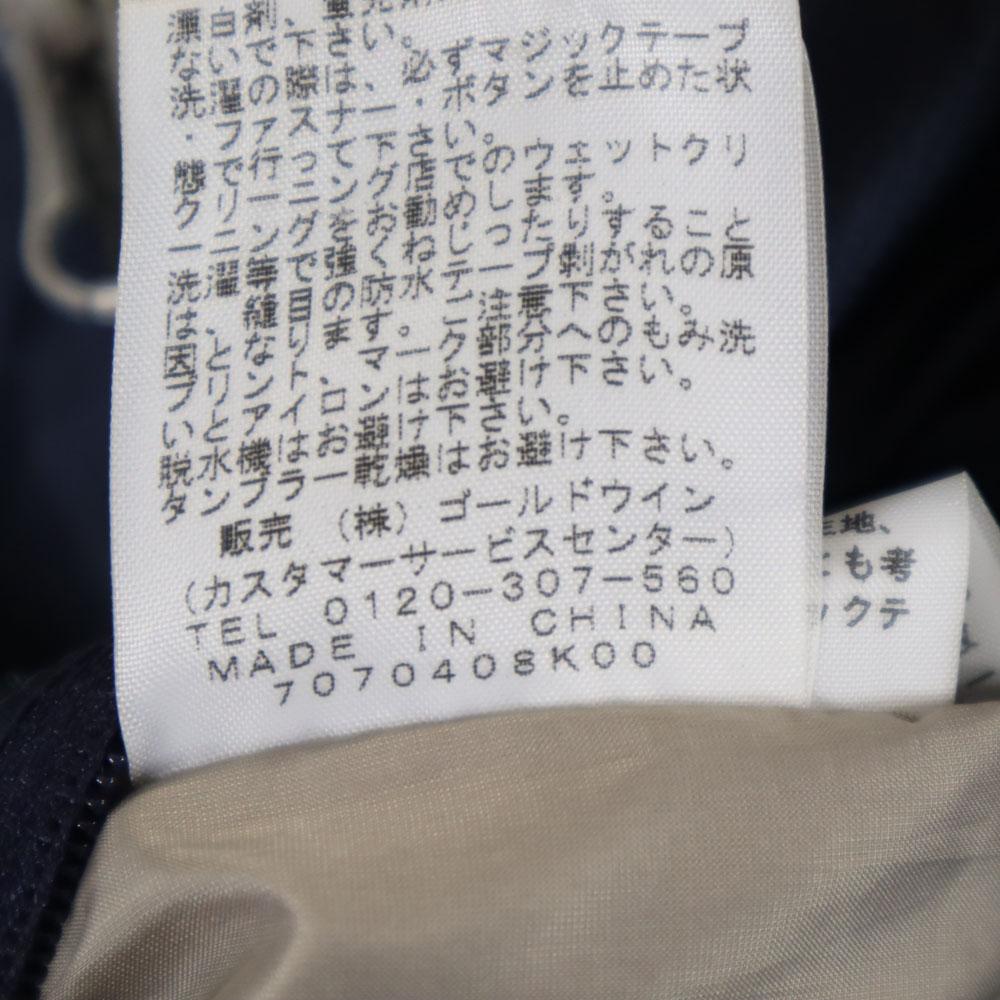 漂白剤
ないで下さい。
洗濯の際は、必ずマジックテープ
・ファスナー・ボタンを止めた状
態で行って下さい。
クリーニング店でのウェットクリ
ーニングをお勧めします。
洗濯等で強くねじったりすること
は、縫目の防水テープが剥れる原
因となりますのでご注意下さい。
プリントマーク部分へのもみ洗
いとアイロンはお避け下さい。
脱水機はお避け下さい。
タンブラー乾燥はお避け下さい。
販売 (株) ゴールドウイン
(カスタマーサービスセンター)
TEL 0120-307-560
MADE IN CHINA
7070408K00
地、
も考
ックテ